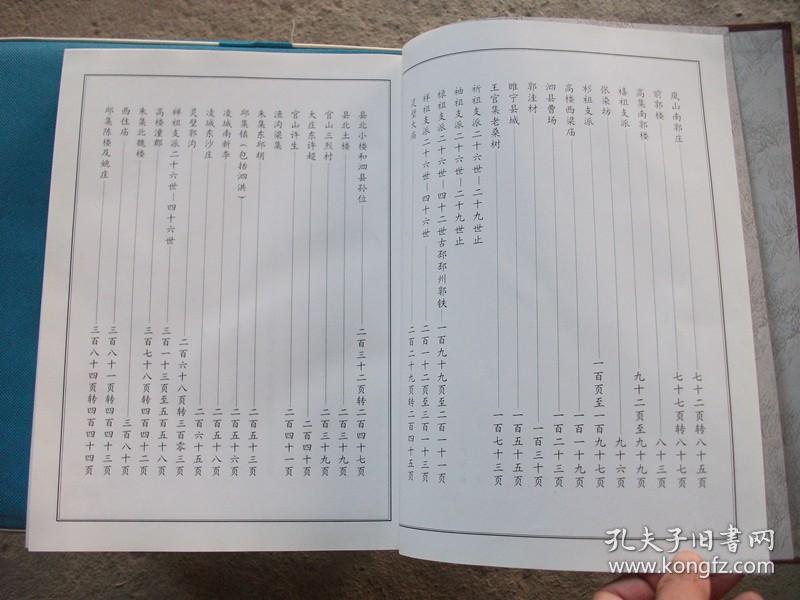 岚山南郭庄 七十二页转八十五页
前郭楼 七十七页转八十七页
高集南郭楼 八十三页
禧祖支派 九十二页至九十九页
张染坊 九十六页
杉祖支派 一百页至一百九十七页
高楼西梁庙 一百一十九页
泗县曹场 一百二十三页
郭洼村 一百三十页
睢宁县城 一百五十五页
王官集老桑树 一百七十三页
祈祖支派二十六世—二十九世止
袖祖支派二十六世—二十九世止
禄祖支派二十六世—四十二世古邳邳州郭铁 一百九十九页至二百一十一页
祥祖支派二十六世—四十六世 二百一十二页至三百一十三页
灵璧大庙 二百二十九页转二百四十五页
县北小楼和泗县孙位 二百三十二页转二百四十七页
县北土楼 二百三十九页
官山三烈村 二百三十九页
大庄东许超 二百四十页
官山许生 二百四十一页
渔沟梁集
朱集东邱胡 二百五十三页
邱集镇（包括泗洪） 二百五十六页
凌城南新李 二百五十八页
凌城东沙庄 二百六十五页
灵璧郭沟
祥祖支派二十六世—四十六世 二百六十八页转三百零三页
高楼潼郡 三百一十三页至五百五十八页
朱集北魏楼 三百七十八页转四百四十二页
西住庙 三百八十页
邱集陈楼及姚庄 三百八十一页转四百四十三页
三百八十四页转四百四十四页
孔夫子旧书网
www.kongfz.com